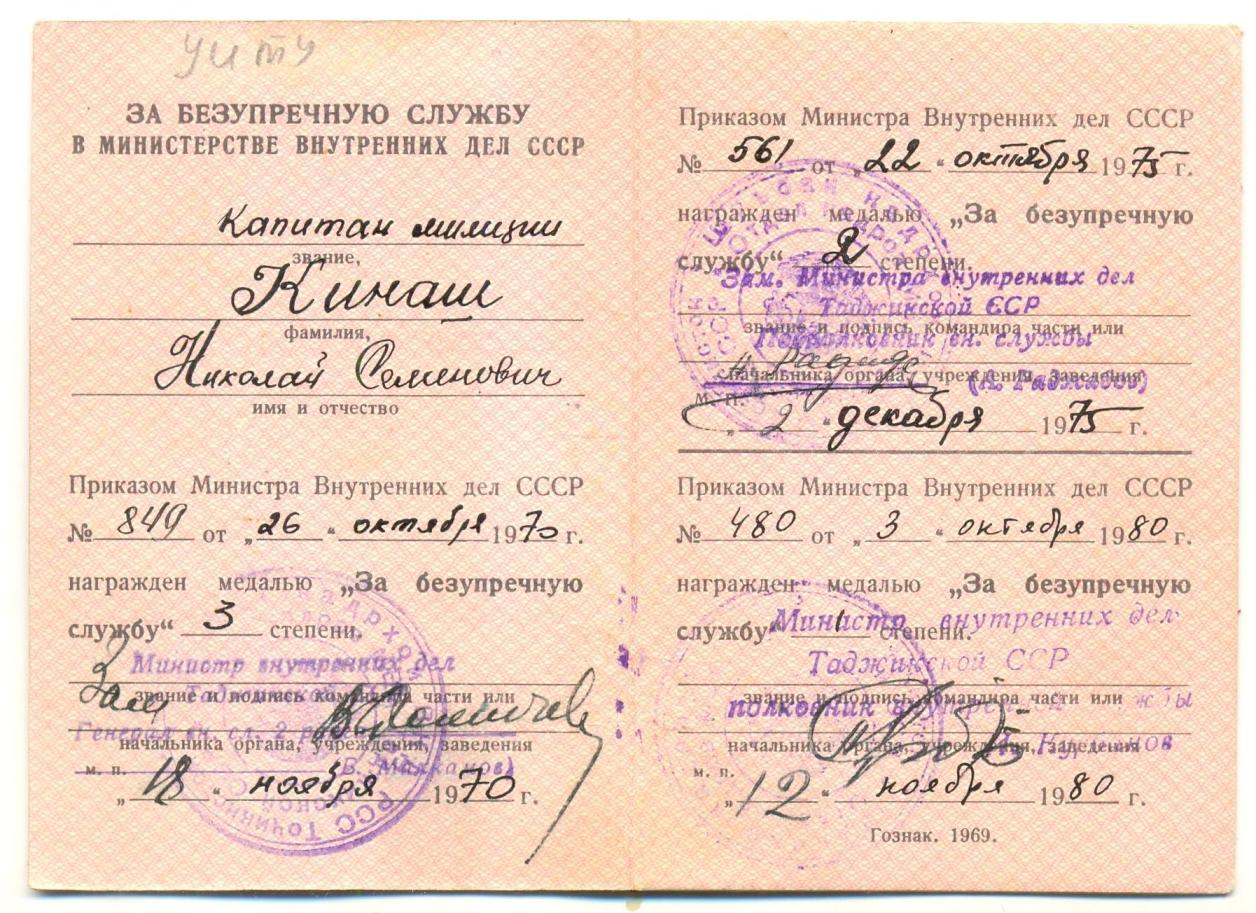 УИТУ
ЗА БЕЗУПРЕЧНУЮ СЛУЖБУ
В МИНИСТЕРСТВЕ ВНУТРЕННИХ ДЕЛ СССР
Капитан милиции
звание,
Кинаш
фамилия,
Николай Семенович
имя и отчество
Приказом Министра Внутренних дел СССР
№ 849 от „26“ октября 1970 г.
награжден медалью „За безупречную
службу“ 3 степени.
Министр внутренних дел
Зам
звание и подпись командира части или
Генерал вн. сл. 2
начальника органа, учреждения, заведения
м. п.
„18“ ноября 1970 г.
Приказом Министра Внутренних дел СССР
№ 561 от „22“ октября 1975 г.
награжден медалью „За безупречную
службу“ 2 степени.
Зам. Министра внутренних дел
Таджикской ССР
звание и подпись командира части или
Подполковник вн. службы
начальника органа, учреждения, заведения
м. п.
„2“ декабря 1975 г.
Приказом Министра Внутренних дел СССР
№ 480 от „3“ октября 1980 г.
награжден медалью „За безупречную
службу“ 1 степени.
Министр внутренних дел
Таджикской ССР
звание и подпись командира части или
полковник внутренней
начальника органа, учреждения, заведения
м. п.
„12“ ноября 1980 г.
Гознак. 1969.